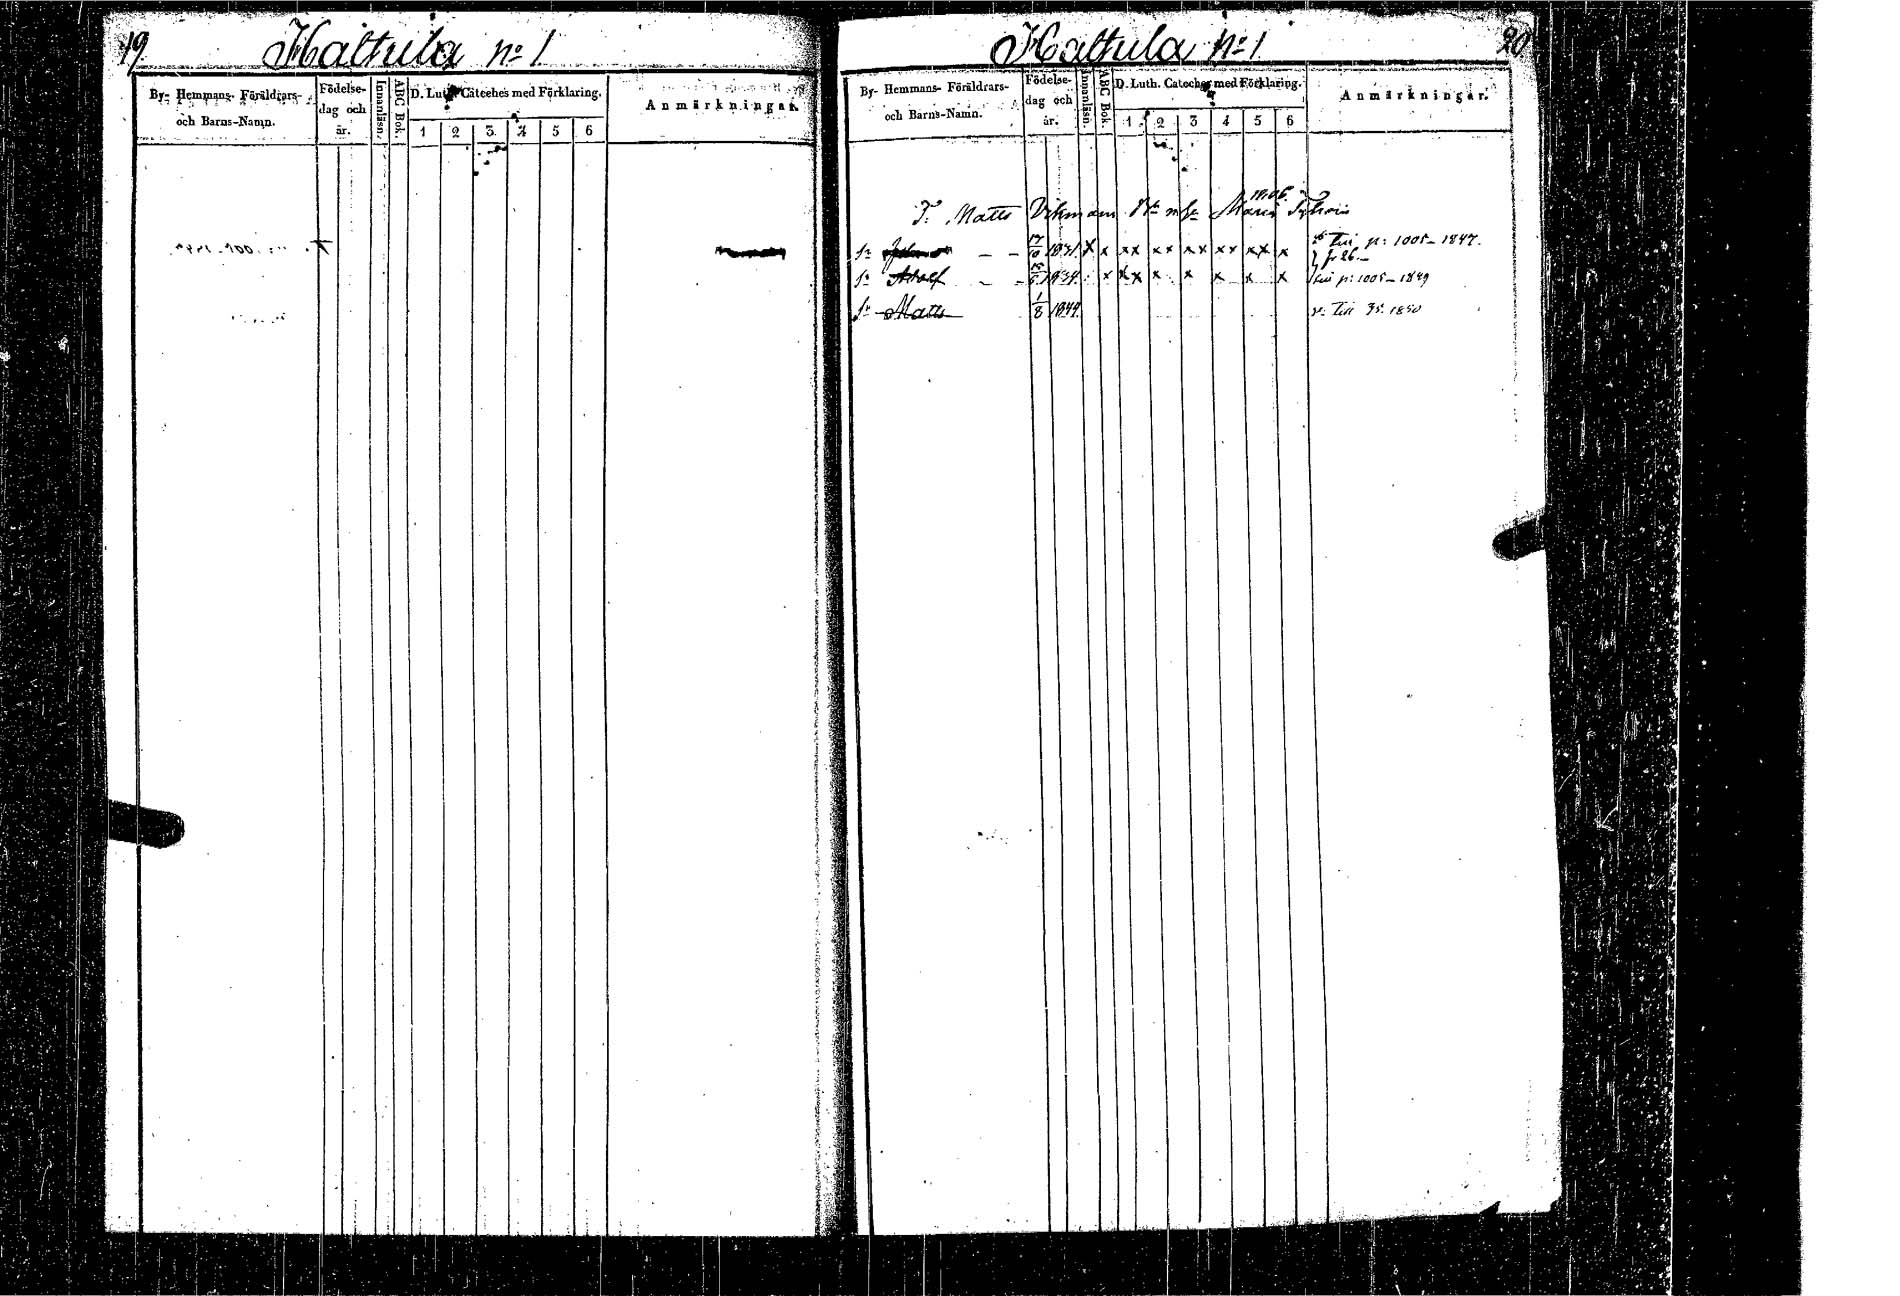 19
Haltula no 1
By- Hemmans- Föräldrars- och Barns-Namn.
Födelse- dag och år.
Innanläsn.
ABC Bok.
D. Luth. Catechesmed Förklaring.
1 2 3 4 5 6
Anmärkningar.
Haltula no 1
20
By- Hemmans- Föräldrars- och Barns-Namn.
Födelse- dag och år.
Innanläsn.
ABC Bok.
D. Luth. Cateches med Förklaring.
1 2 3 4 5 6
Anmärkningar.
T. Matts Vikman Maria
17/10 1831 x x xx xx xx xx xx x Till p: 1005-1847.
fr 26.
Sn Adolf 1834 x xx x x x x x till p: 1005-1849
Sn Matts 1/8 1849 Till 35. 1850